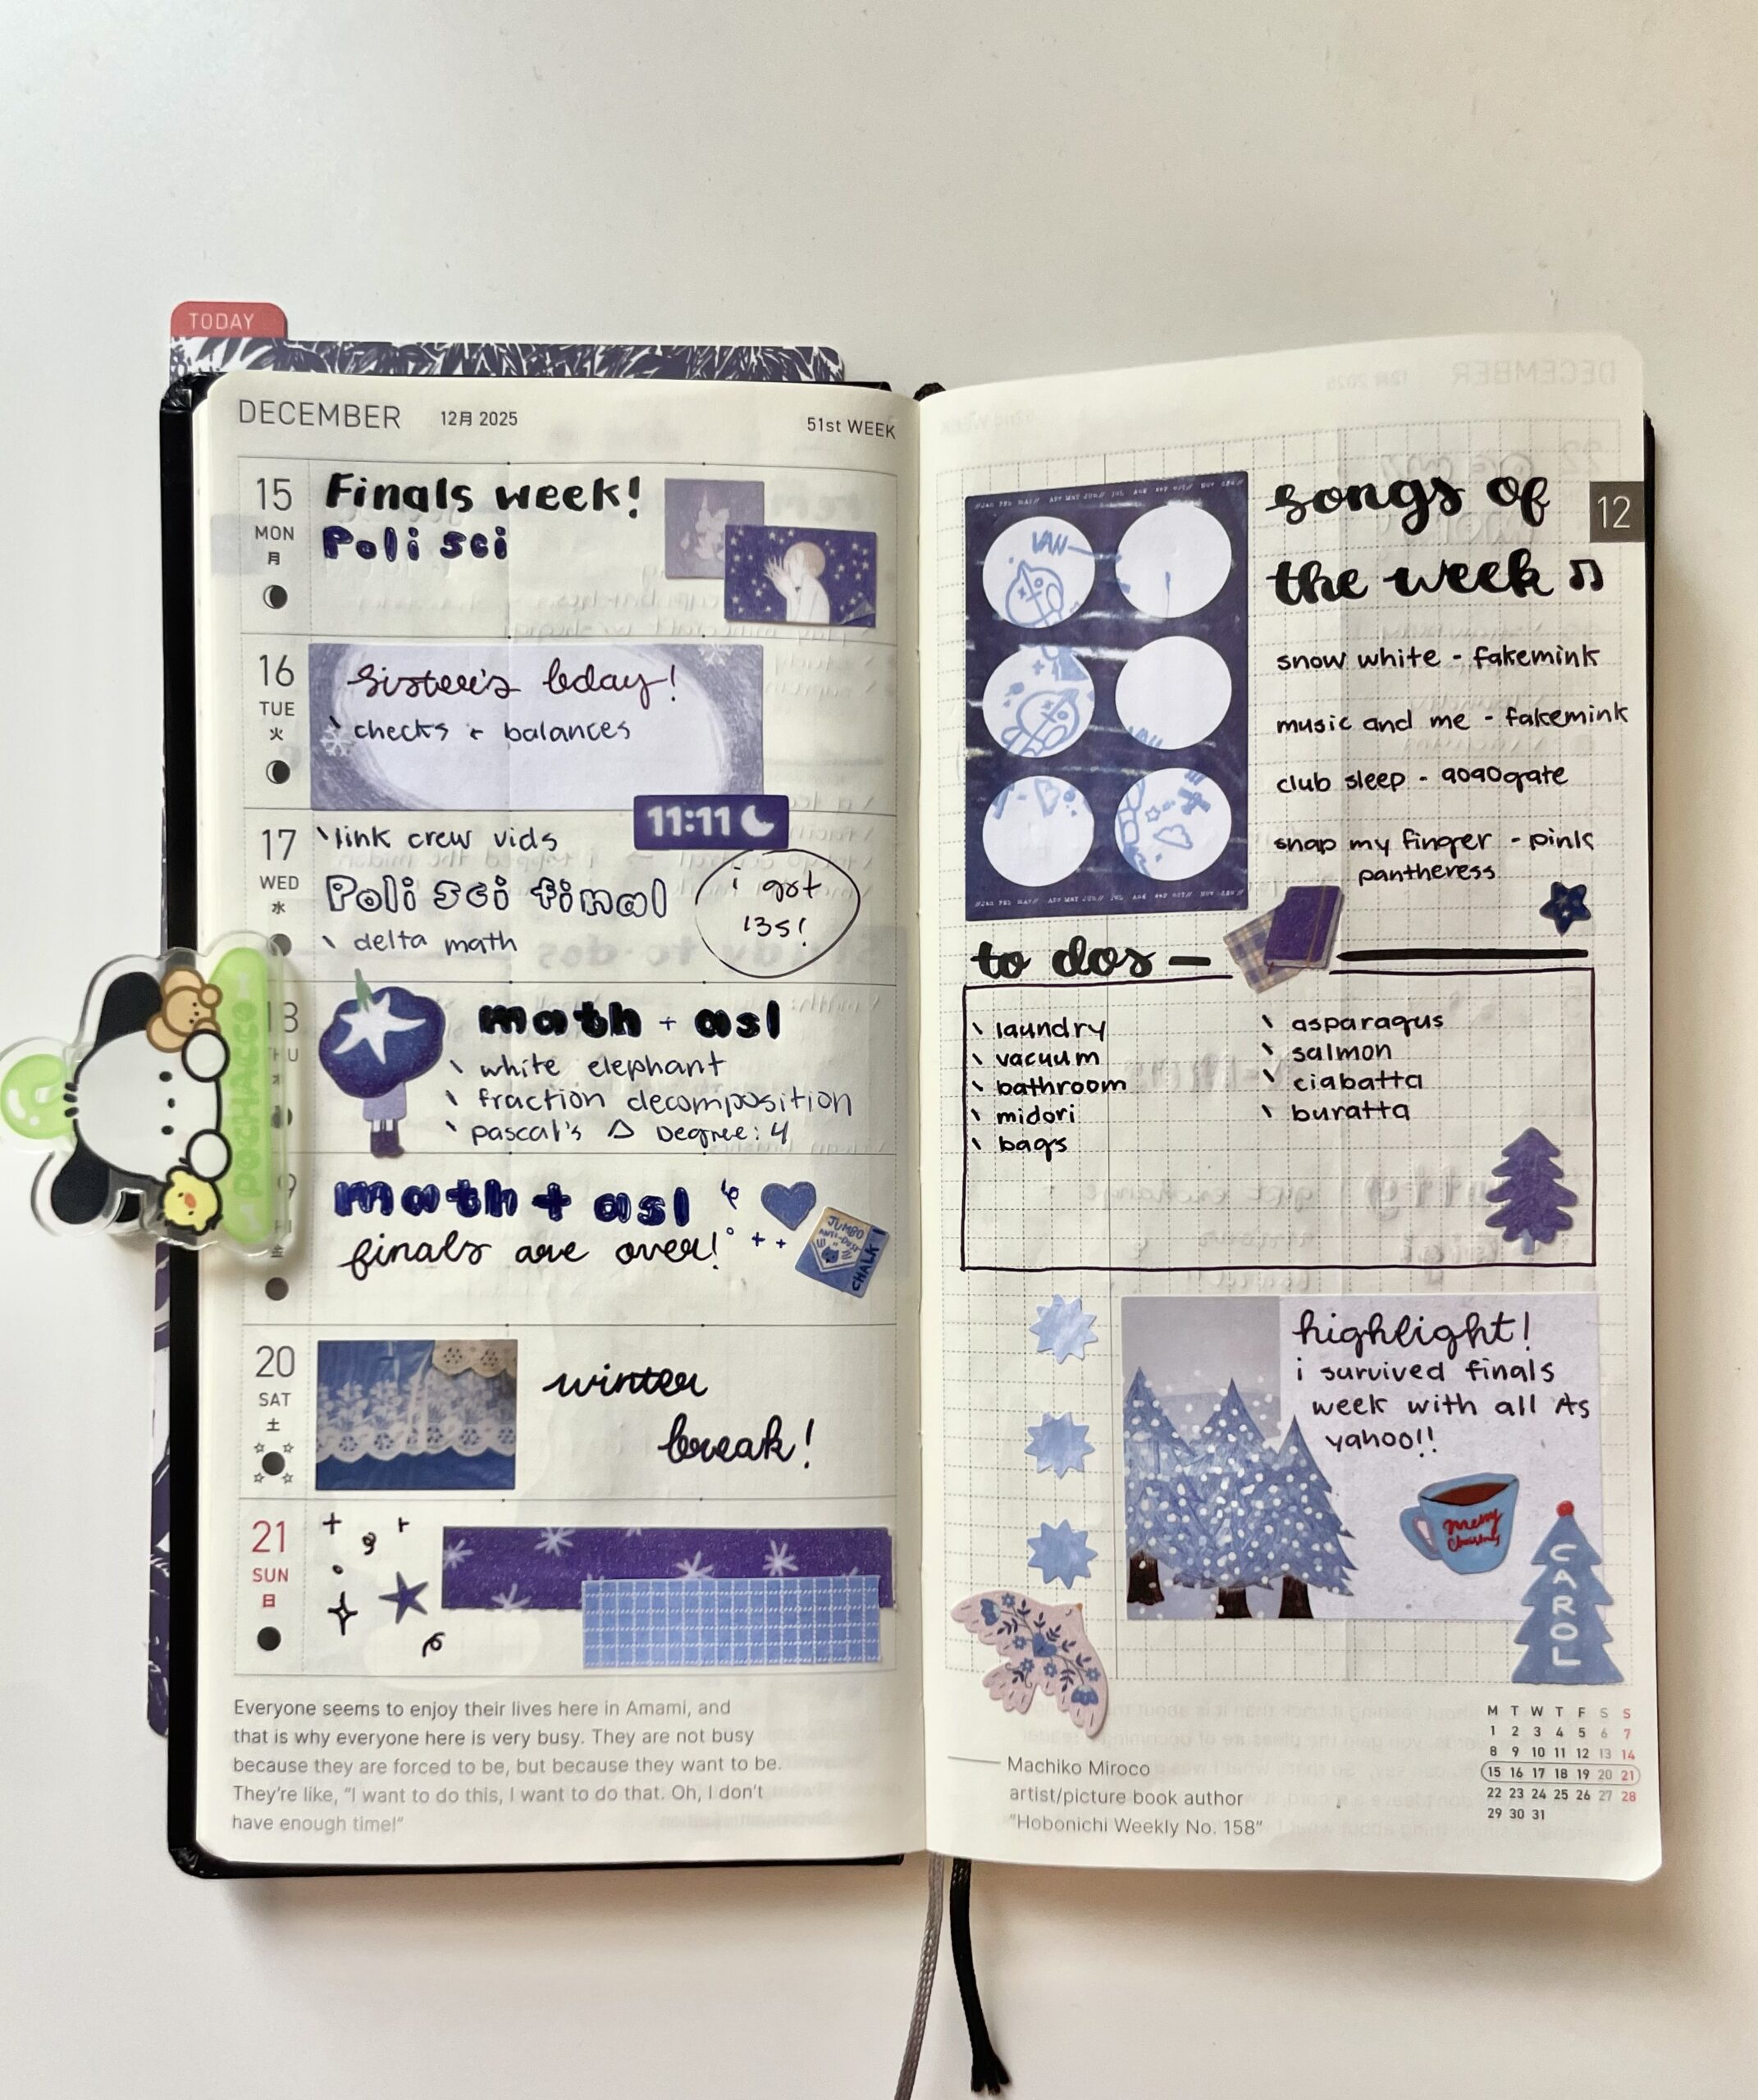 TODAY
DECEMBER 12月 2025 51st WEEK
15 MON 月
Finals week!
Poli sci
16 TUE 火
sister's bday!
\ checks + balances
11:11
17 WED 水
\ link crew vids
Poli sci final
i got
135!
\ delta math
math + asl
\ white elephant
\ fraction decomposition
\ pascal's △ Degree: 4
POCHACCO
math + asl
finals are over!
JUMBO
CHALK
20 SAT 土
winter
break!
21 SUN 日
Everyone seems to enjoy their lives here in Amami, and
that is why everyone here is very busy. They are not busy
because they are forced to be, but because they want to be.
They're like, "I want to do this, I want to do that. Oh, I don't
have enough time!"
12
songs of
the week ♫
snow white - fakemink
music and me - fakemink
club sleep - 9090gate
snap my finger - pink
pantheress
to dos —
\ laundry
\ vacuum
\ bathroom
\ midori
\ bags
\ asparagus
\ salmon
\ ciabatta
\ buratta
highlight!
i survived finals
week with all As
yahoo!!
Merry
Christmas
CAROL
Machiko Miroco
artist/picture book author
"Hobonichi Weekly No. 158"
M T W T F S S
1 2 3 4 5 6 7
8 9 10 11 12 13 14
15 16 17 18 19 20 21
22 23 24 25 26 27 28
29 30 31